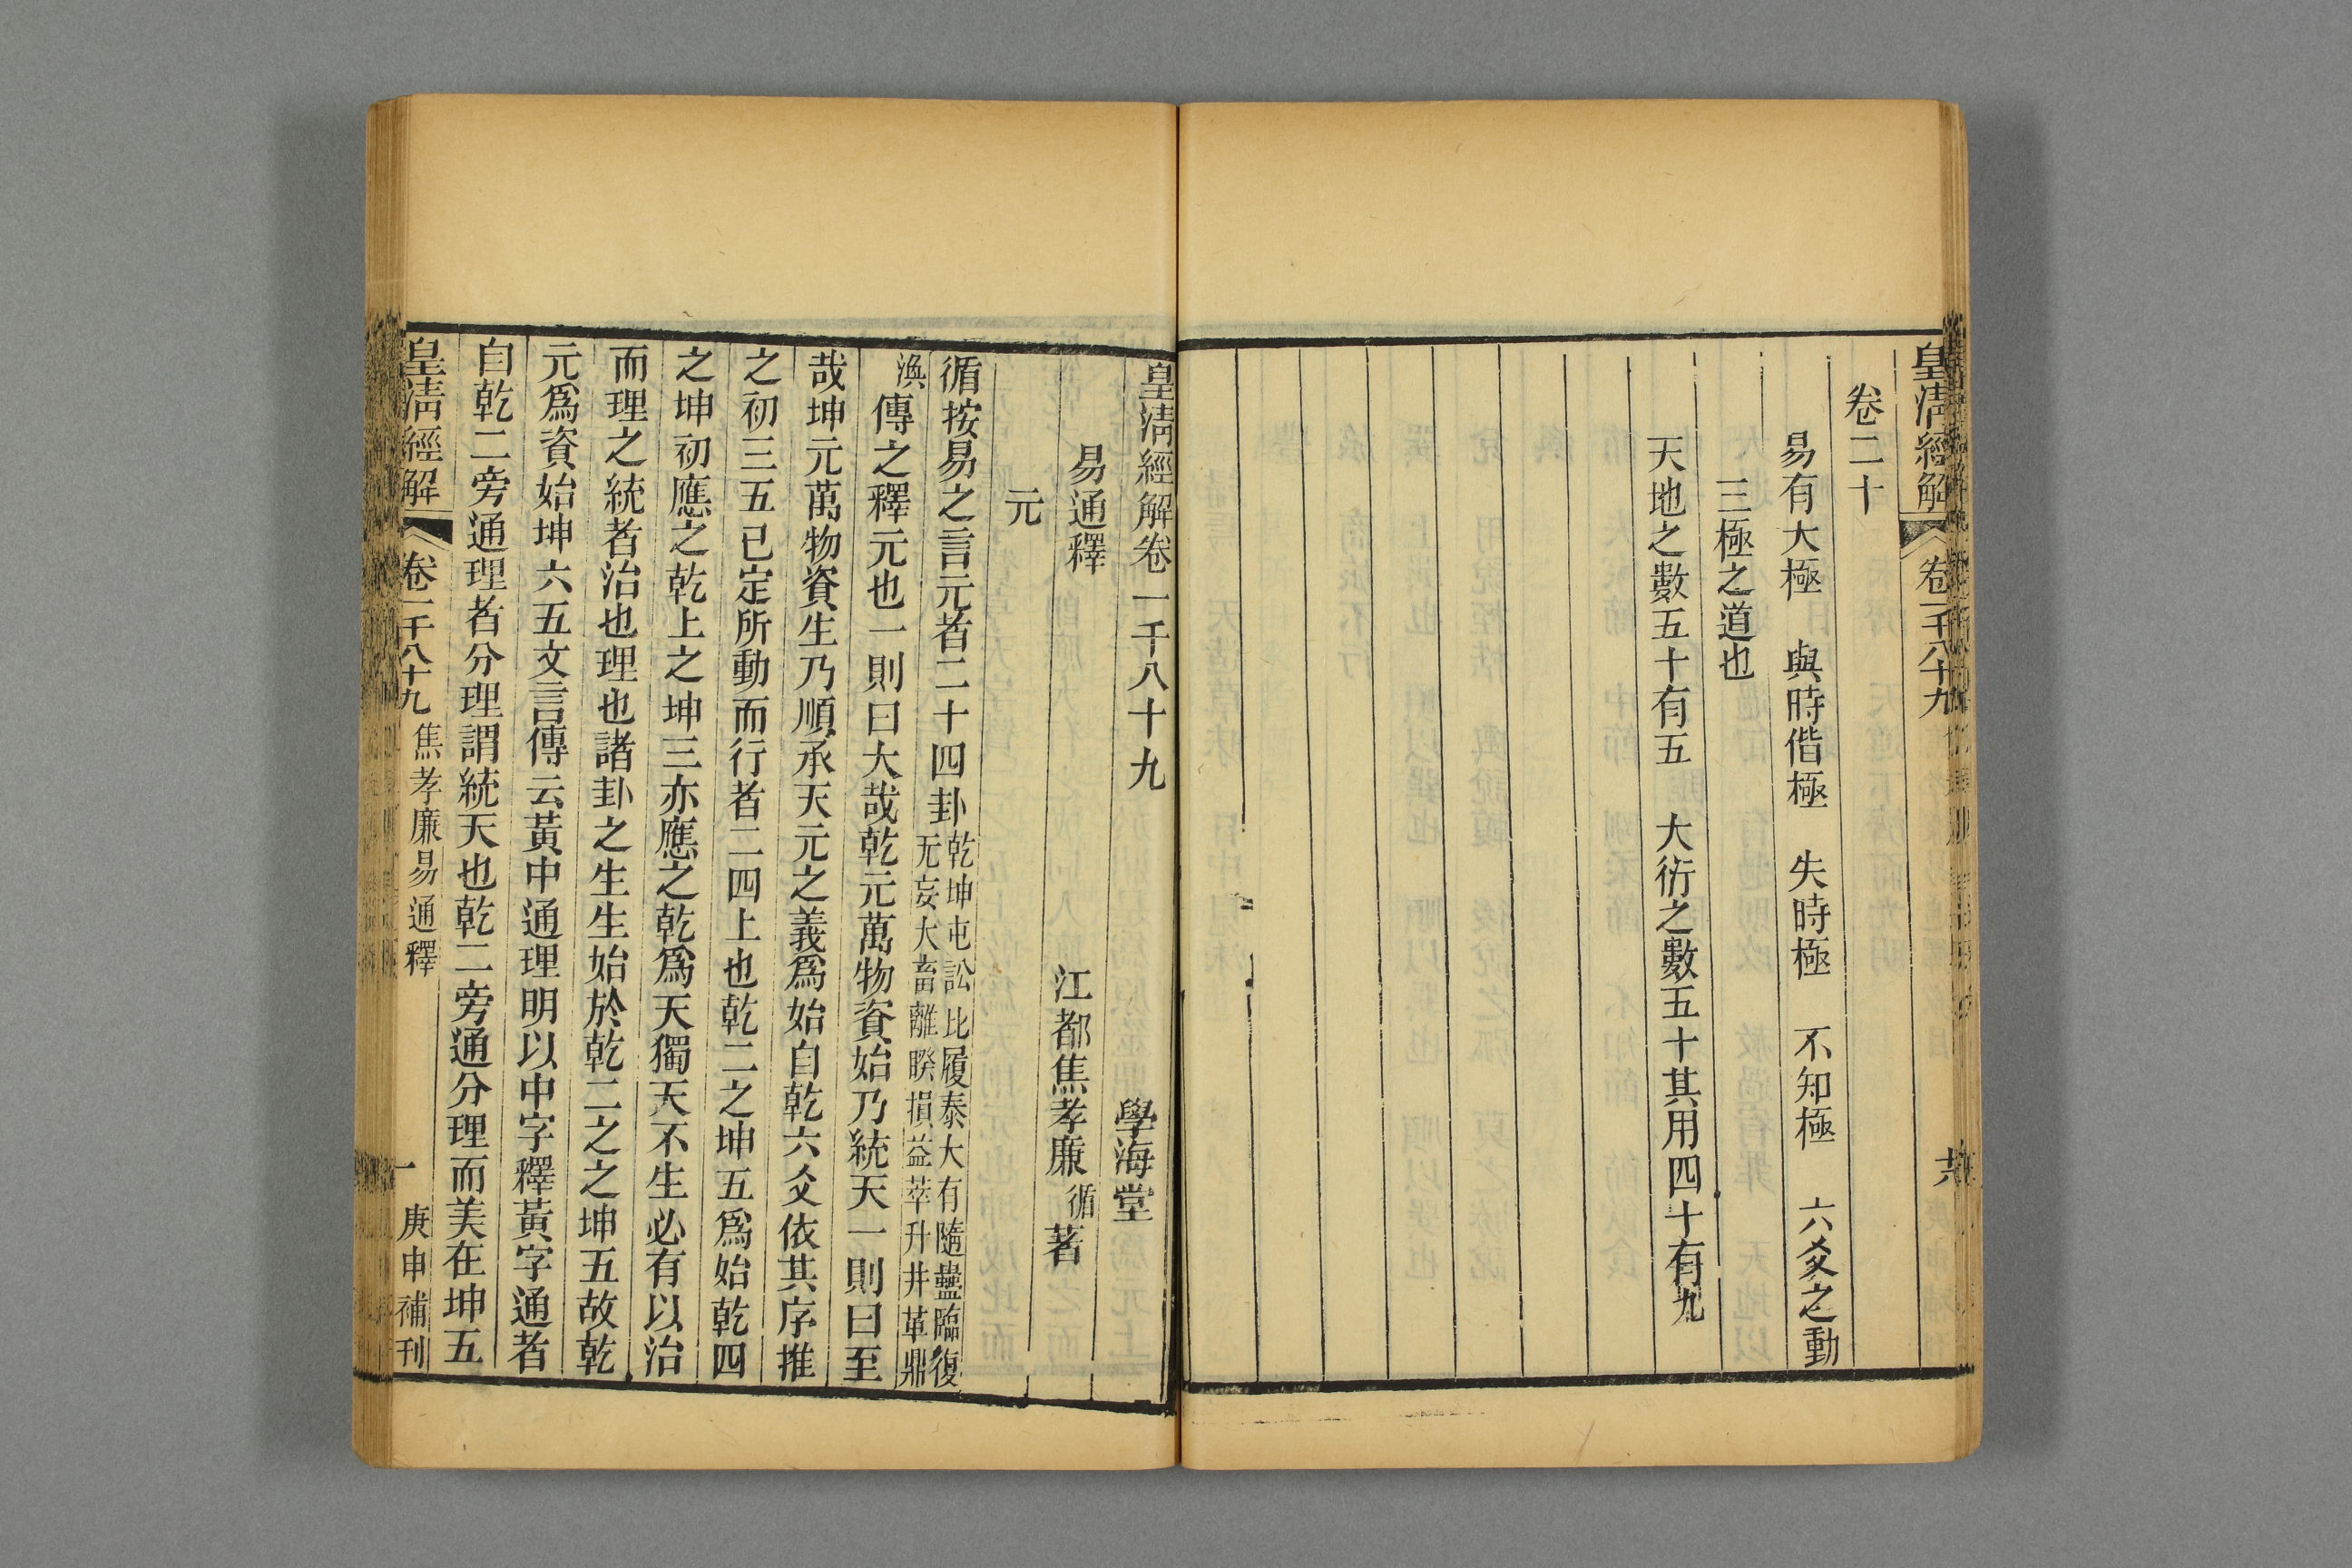 皇清經解 卷一千八十九
卷二十
易有大極 與時偕極 失時極 不知極 六爻之動
三極之道也
天地之數五十有五 大衍之數五十其用四十有九
皇清經解卷一千八十九 學海堂
易通釋 江都焦孝廉循著
元
循按易之言元者二十四卦乾坤屯訟比履泰大有隨蠱臨復
无妄大畜離睽損益萃升井革鼎
渙傳之釋元也一則曰大哉乾元萬物資始乃統天一則曰至
哉坤元萬物資生乃順承天元之義爲始自乾六爻依其序推
之初三五已定所動而行者二四上也乾二之坤五爲始乾四
之坤初應之乾上之坤三亦應之乾爲天獨天不生必有以治
而理之統者治也理也諸卦之生生始於乾二之坤五故乾
元爲資始坤六五文言傳云黃中通理明以中字釋黃字通者
自乾二旁通理者分理謂統天也乾二旁通分理而美在坤五
皇清經解 卷一千八十九 焦孝廉易通釋 一 庚申補刊